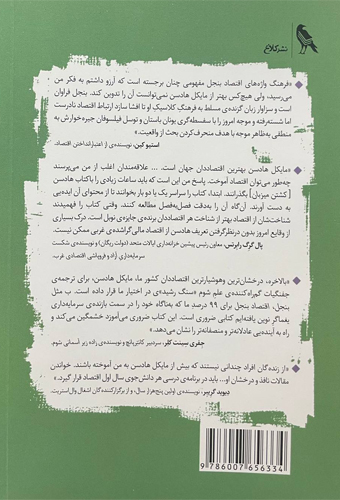 نشر کلاغ
«فرهنگ واژه‌های اقتصاد بنجل مفهومی چنان برجسته است که آرزو داشتم به فکر من
می‌رسید، ولی هیچ‌کس بهتر از مایکل هادسن نمی‌توانست آن را تدوین کند. بنجل فراوان
و سزاوار زبان گزنده‌ی مسلط به فرهنگ کلاسیک او تا افشا سازد ارتباط اقتصاد نادرست
اما شسته‌رفته و موجه امروز را با سفسطه‌گری یونان باستان و توسل فیلسوفان جیره‌خوارش به
منطقی به‌ظاهر موجه با هدف منحرف‌کردن بحث از واقعیت.»
استیو کین، نویسنده‌ی از اعتبارانداختن اقتصاد.
«مایکل هادسن بهترین اقتصاددان جهان است. ... علاقه‌مندان اغلب از من می‌پرسند
چه‌طور می‌توان اقتصاد آموخت. پاسخ من این است که باید ساعات زیادی را با کتاب هادسن
[کشتن میزبان] بگذرانند. ابتدا، کتاب را سراسر یک یا دو بار بخوانند تا از محتوای آن ایده‌یی
به دست آورند. آن‌گاه آن را به‌دقت فصل‌به‌فصل مطالعه کنند. وقتی کتاب را فهمیدند
شناخت‌شان از اقتصاد بهتر از شناخت هر اقتصاددان برنده‌ی جایزه‌ی نوبل است. درک بسیاری
از وقایع امروز بدون درنظرگرفتن تعریف هادسن از اقتصاد مالی‌گراشده‌ی غربی ممکن نیست.
پال گرگ رابرتس، معاون رئیس پیشین خزانه‌داری ایالات متحد (دولت ریگان) و نویسنده‌ی شکست
سرمایه‌داری آزاد و فروپاشی اقتصادی غرب.
«بالاخره، درخشان‌ترین و هوشیارترین اقتصاددان کشور ما، مایکل هادسن، برای ترجمه‌ی
جفنگیات گیراه‌کننده‌ی علم شوم «سنگ رشید»ی در اختیار ما قرار داده است. ب مثل
بنجل، اقتصاد بنجل برای ۹۹ درصدِ ما که به‌ناگاه خود را در سمت بازنده‌ی سرمایه‌داری
یغماگرِ نوین یافته‌ایم کتابی ضروری است. این کتاب ضروری می‌آموزد خشمگین می‌کند و
راه به آینده‌یی عادلانه‌تر و منصفانه‌تر را نشان می‌دهد.»
جفری سینت کلر، سردبیر کانترپانچ و نویسنده‌ی زاده زیر آسمانی شوم.
«از زنده‌گان افراد چندانی نیستند که بیش از مایکل هادسن به من آموخته باشند. خواندن
مقالات نافذ و درخشان او... باید در برنامه‌ی درسی هر دانش‌جوی سال اول اقتصاد قرار گیرد.»
دیوید گریبر، نویسنده‌ی اولین پنج‌هزار سال، و از برگزارکننده‌گان اشغال وال‌استریت.
9 786007 656334